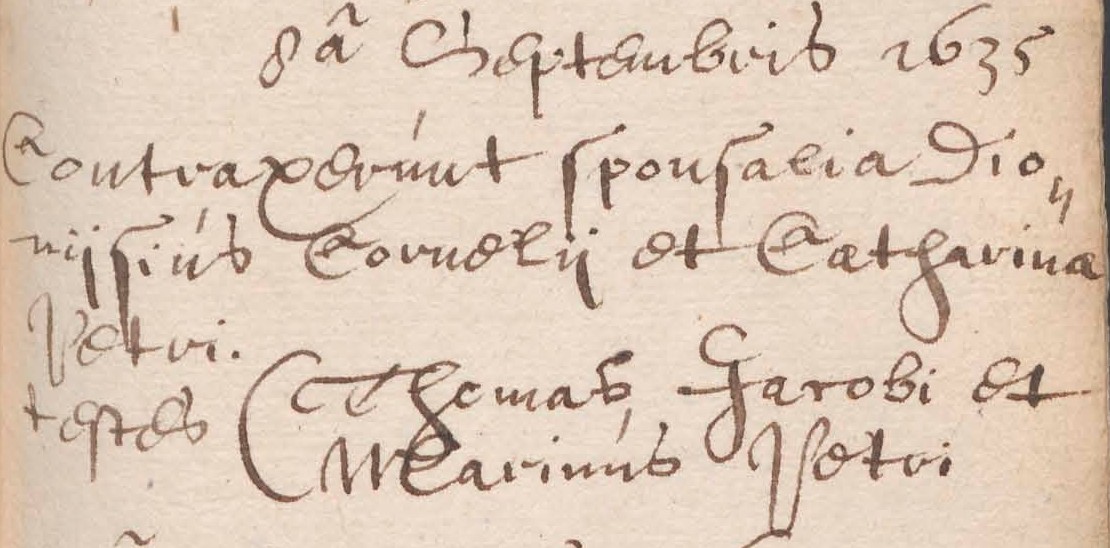 8ã Septembris 1635
Contraxerúnt sponsalia Dio„
nijsiús Cornelij et Catharina
Petri.
testes (Thomas Jacobi et
Marinús Petri